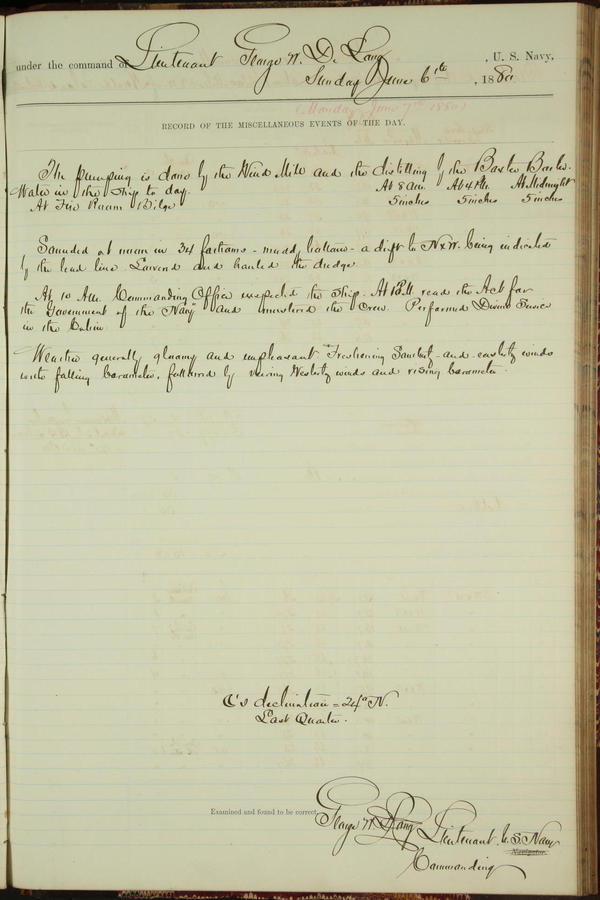 under the command of Lieutenant George W. De Long, U. S. Navy,
Sunday June 6th, 1880
(Monday June 7th 1880)
RECORD OF THE MISCELLANEOUS EVENTS OF THE DAY.
The pumping is done by the Wind Mill and the distilling by the Baxter Boiler.
Water in the Ship to day. At 8 a.m. At 4 P.M. At Midnight
At Fire Room Bilge 5 inches 5 inches 5 inches
Sounded at noon in 34 fathoms - muddy bottom - a drift to N.W. being indicated
by the lead line. Lowered and hauled the dredge
At 10 A.M. Commanding Officer inspected the Ship. At 1 P.M. read the Act for
the Government of the Navy and mustered the crew. Performed Divine Service
in the Cabin.
Weather generally gloomy and unpleasant. Freshening Southerly and easterly winds
with falling barometer, followed by veering Westerly winds and rising barometer.
☾'s declination = 24° N.
Last Quarter.
Examined and found to be correct.
George W. De Long Lieutenant U.S. Navy
Navigator
Commanding